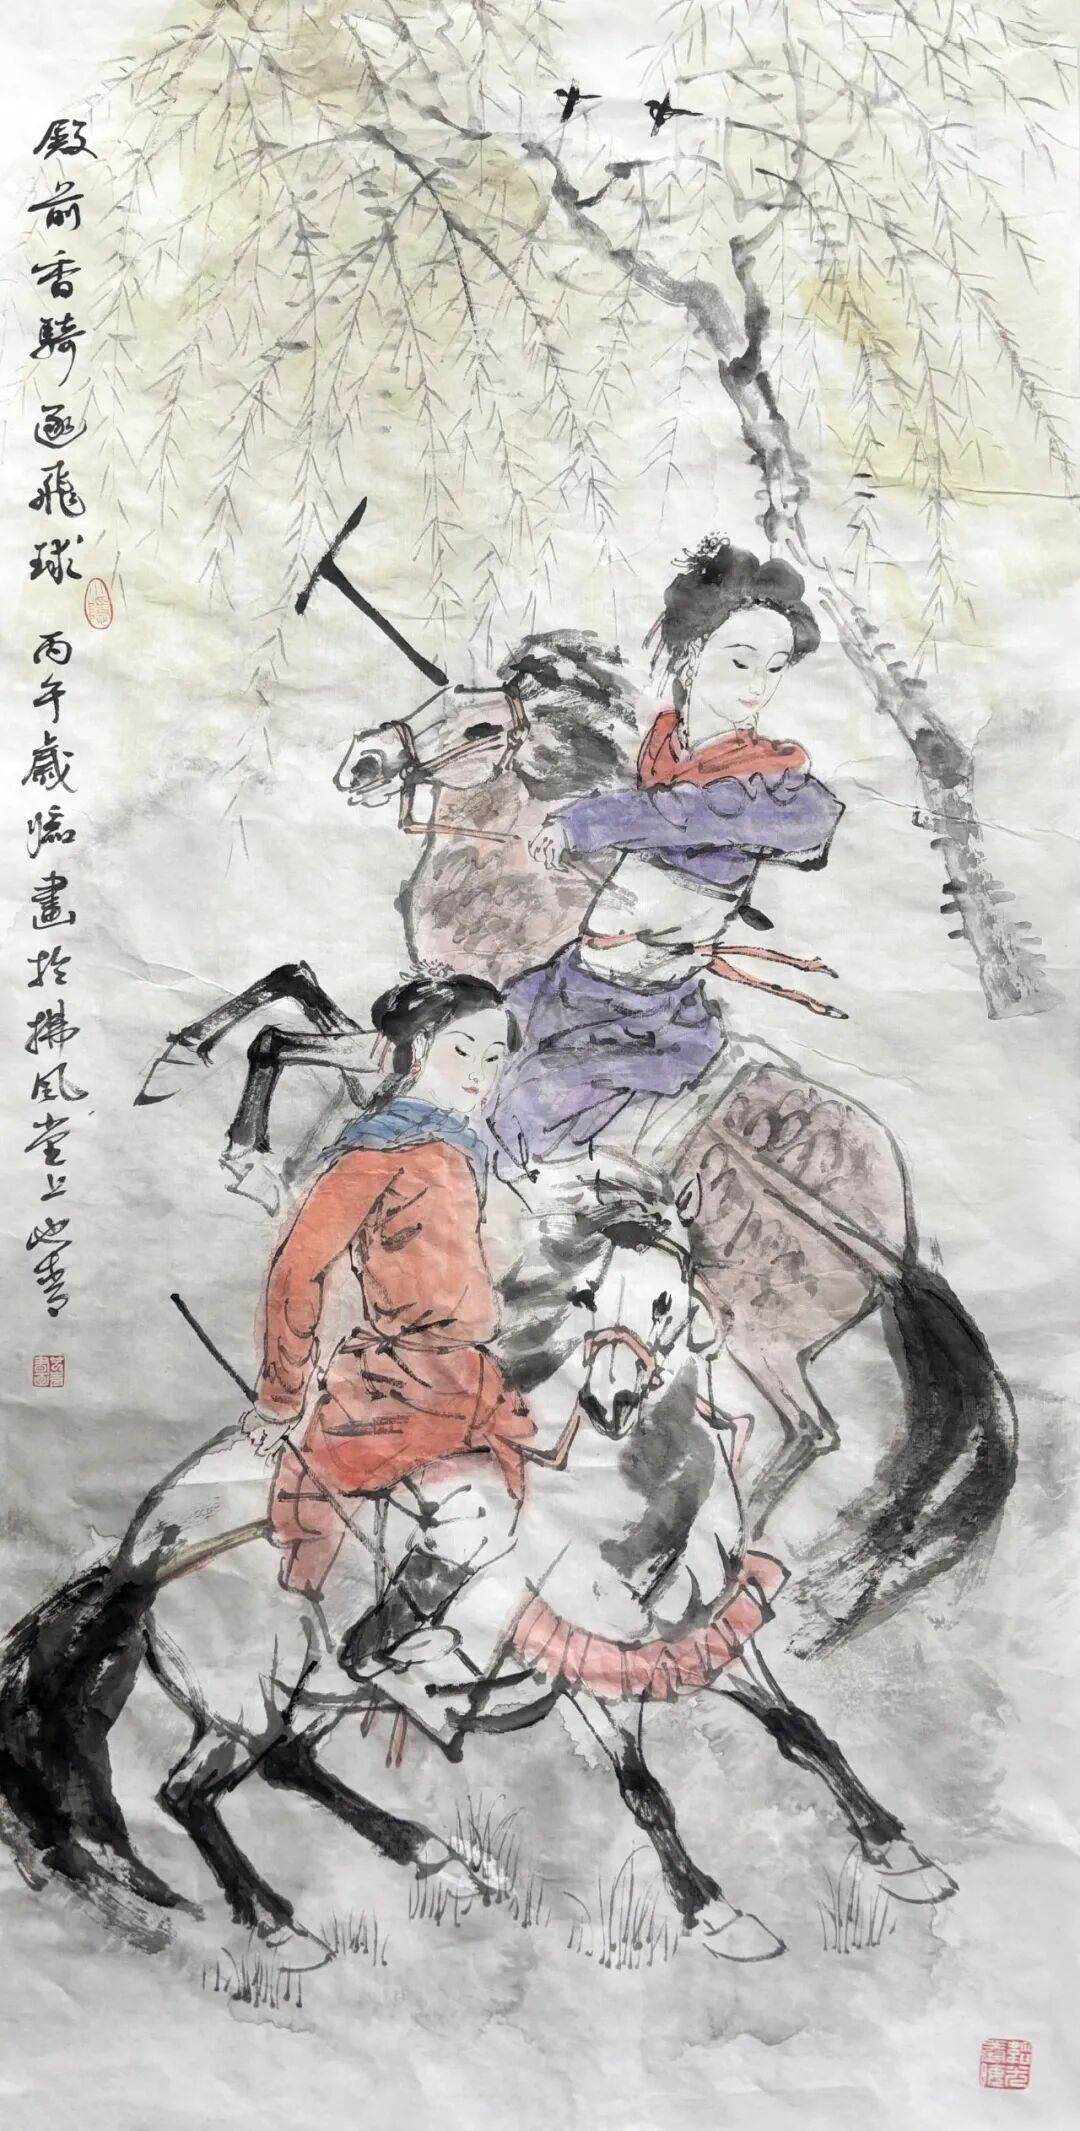 殿前香騎逐飛球 丙午歲畫於拂風堂上